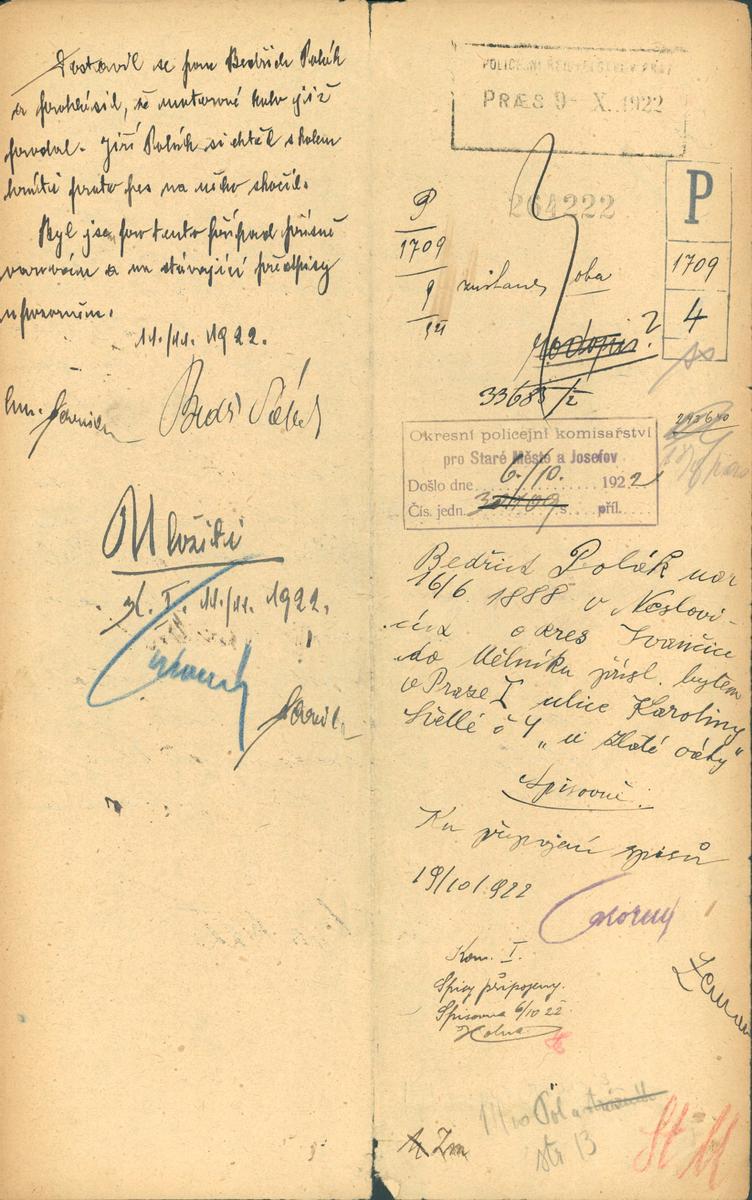 Dostavil se pan Bedřich Polák
a prohlásil, že motorové kolo již
prodal. Jiří Polák si chtěl s kolem
hráti proto pes na něho skočil.
Byl jsem pro tento případ přísně
varován a na stávající předpisy
upozorněn.
11./11. 1922.
Bedř Polák
Uložiti
K. I. 11./11. 1922.
POLICEJNÍ ŘEDITELSTVÍ V PRAZE
PRÆS 9- X. 1922
264222
P
1709
9
P
1709
4
oba
33683/2
293640
Okresní policejní komisařství
pro Staré Město a Josefov
Došlo dne 6./10. 1922
Čís. jedn. s příl.
Bedřich Polák nar
16/6 1888 v Neslovi-
cích okres Ivančice
do Mělníku přísl. bytem
v Praze I ulice Karoliny
Světlé č 4 „u zlaté váhy"
Spisovně
Ku připojení spisů
19/10 1922
Kom. I.
Spisy připojeny.
Spisovna 6/10 22
Zm
str 13
St M